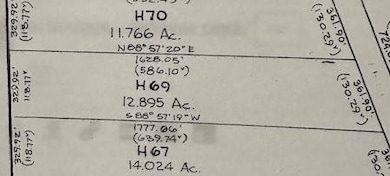 H70
11.766 Ac.
N88°57'20"E
1628.05'
(586.10ᵛ)
H69
12.895 Ac.
S88°57'19"W
1777.66'
(639.74ᵛ)
H67
14.024 Ac.
329.92'
(118.77ᵛ)
329.92'
118.77ᵛ
329.92'
(118.77ᵛ)
361.90'
(130.29ᵛ)
361.90'
(130.29ᵛ)